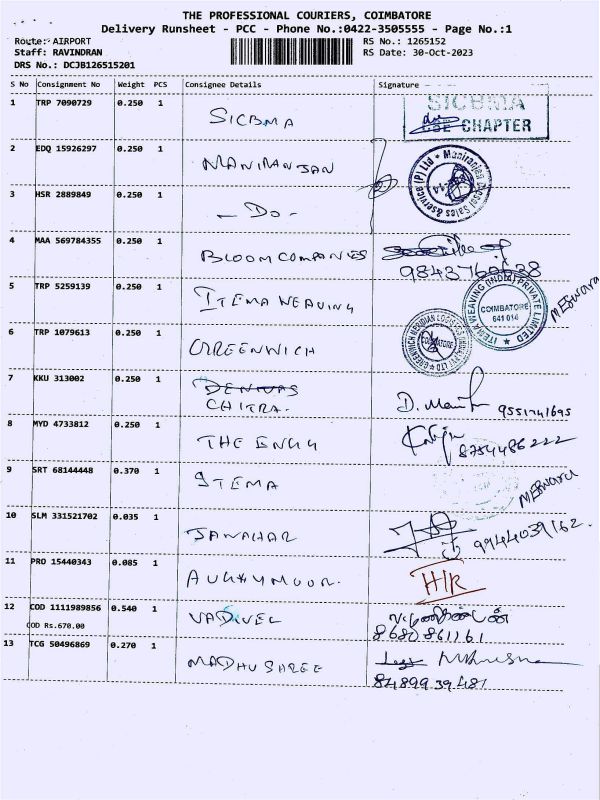 THE PROFESSIONAL COURIERS, COIMBATORE
Delivery Runsheet - PCC - Phone No.:0422-3505555 - Page No.:1
Route: AIRPORT RS No.: 1265152
Staff: RAVINDRAN RS Date: 30-Oct-2023
DRS No.: DCJB126515201
S No Consignment No Weight PCS Consignee Details Signature
1 TRP 7090729 0.250 1 SICBMA SICBMA
CHAPTER
2 EDQ 15926297 0.250 1 MANIRANJAN Maniranjan Diesel Sales & Service (P) Ltd
3 HSR 2889849 0.250 1 -DO-
4 MAA 569784355 0.250 1 BLOOM COMPANIES
5 TRP 5259139 0.250 1 ITEMA WEAVING ITEMA WEAVING (INDIA) PRIVATE LIMITED COIMBATORE 641 014
6 TRP 1079613 0.250 1 GREENWICH GREENWICH MERIDIAN LOGISTICS COIMBATORE
7 KKU 313002 0.250 1 CHITRA. 9551741695
8 MYD 4733812 0.250 1 THE ENGG 8754486222
9 SRT 68144448 0.370 1 ITEMA
10 SLM 331521702 0.035 1 JAWAHAR 9944039162.
11 PRO 15440343 0.085 1 H/R
12 COD 1111989856 0.540 1 VADIVEL 8680861161
COD Rs.678.00
13 TCG 50496869 0.270 1 MADHUSHREE 8489939481